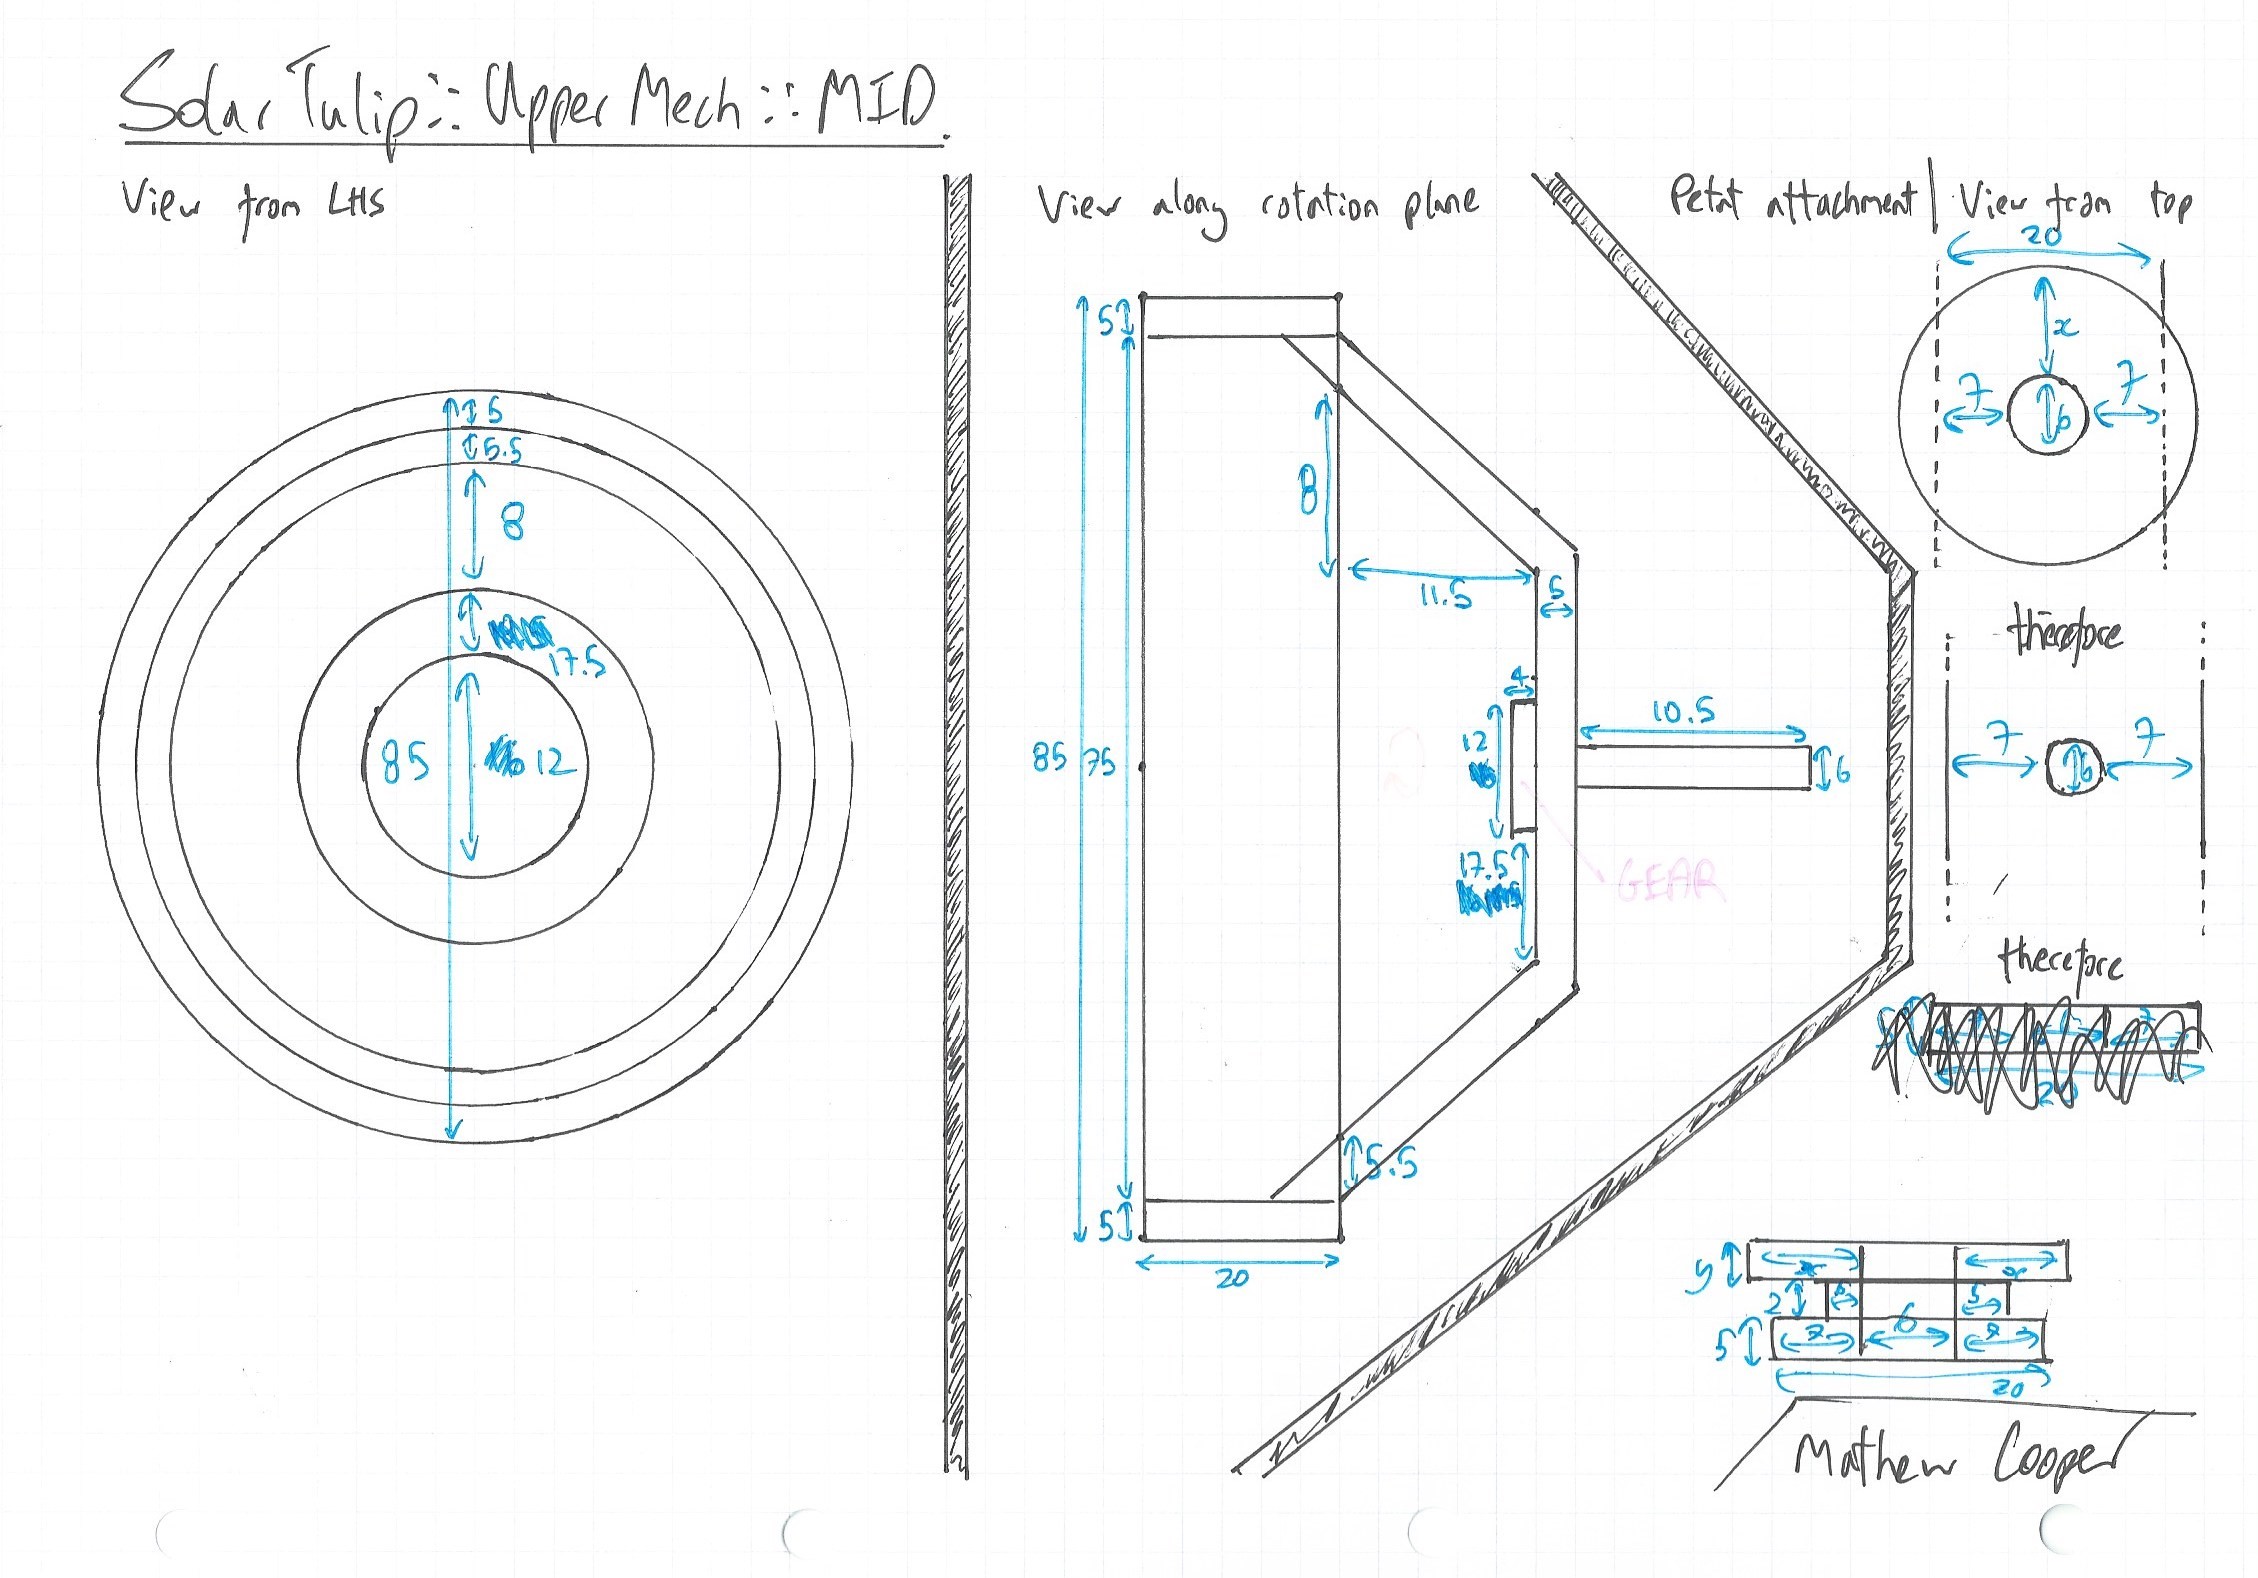 Solar Tulip :: Upper Mech :: MID.
View from LHS
5
5.5
8
17.5
85
12
View along rotation plane
5
8
11.5
5
4
12
17.5
85
75
10.5
6
GEAR
5.5
5
20
Petal attachment | View from top
20
x
7
6
7
therefore
7
6
7
therefore
y
x
x
2
5
5
5
7
6
7
20
Mathew Cooper